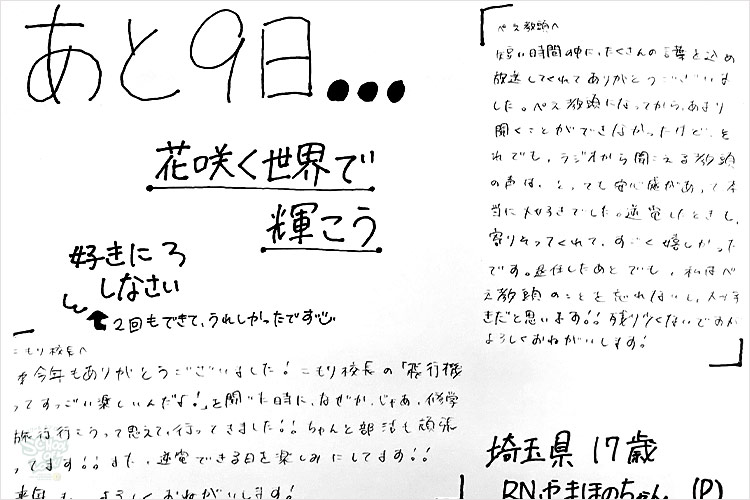 あと9日...
花咲く世界で
輝こう
好きにろ
しなさい
2回もできて、うれしかったです
ぺえ教頭へ
短い時間の中に、たくさんの言葉を込め
放送してくれてありがとうございま
した。ぺえ教頭になってから、あまり
聞くことができなかったけど、そ
れでも、ラジオから聞こえる教頭
の声は、とっても安心感があって本
当に大好きでした。逆電したときも、
寄りそってくれて、すごく嬉しかった
です。退任したあとでも、私はぺ
え教頭のことを忘れないし、大好
きだと思います!!残り少くないですが
よろしくおねがいします!
こもり校長へ
今年もありがとうございました!こもり校長の「飛行機
ってすっごい楽しいんだよ!」を聞いた時に、なぜか、じゃあ、修学
旅行行こうって思えて、行ってきました!!ちゃんと部活も頑張
ってます!!また、逆電できる日を楽しみにしてます!!
来年も、よろしくおねがいします!
埼玉県 17歳
RN.やまほのちゃん (P)